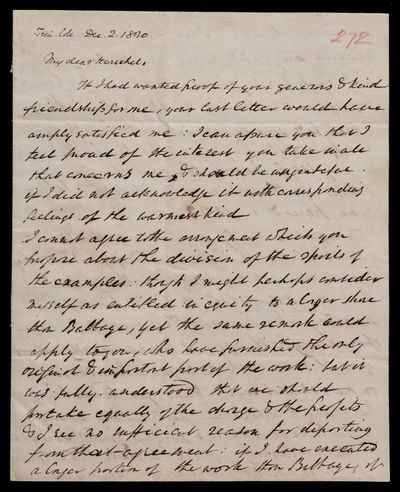 Trin. Coll. Dec. 2. 1820
272
My dear Herschel,
If I had wanted proof of your generous & kind
friendship for me, your last letter would have
amply satisfied me: I can assure you that I
feel proud of the interest you take in all
that concerns me, & should be ungrateful
if I did not acknowledge it with corresponding
feelings of the warmest kind
I cannot agree to the arrangement which you
propose about the division of the spoils of
the examples: though I might perhaps consider
myself as entitled in equity to a larger share
than Babbage, yet the same remark could
apply to you, who have furnished the only
original & important part of the work: but it
was fully understood that we should
partake equally of the charge & the profits
& I see no sufficient reason for departing
from that agreement: if I have executed
a larger portion of the work than Babbage, it